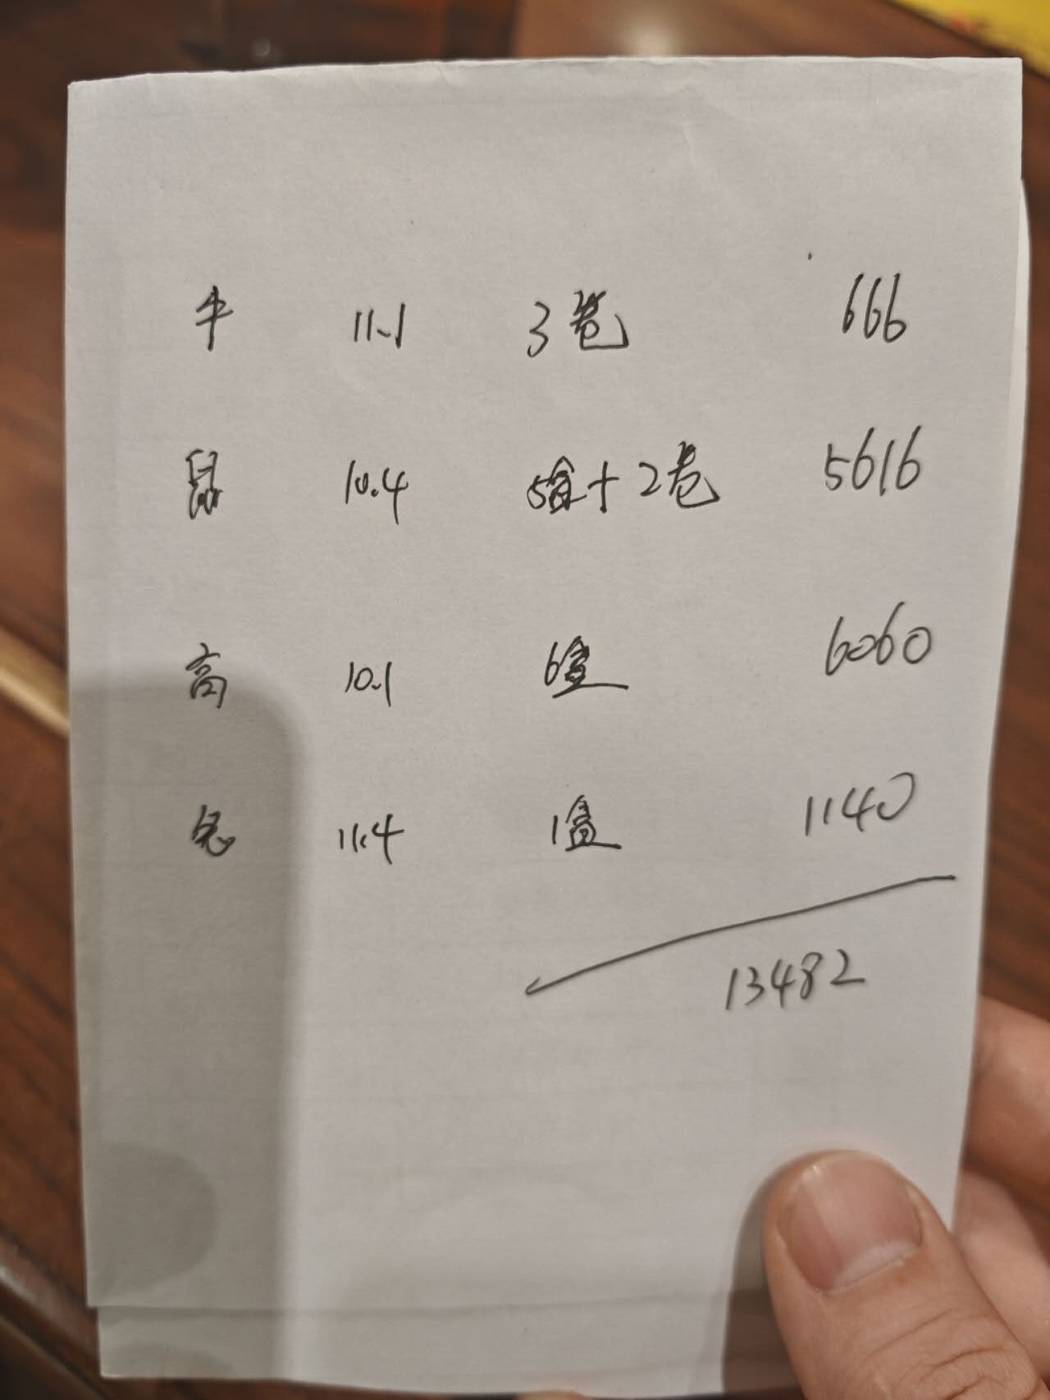 牛 11.1 3卷 666
鼠 10.4 5盒+2卷 5616
高 10.1 6盒 6060
兔 11.4 1盒 1140
13482